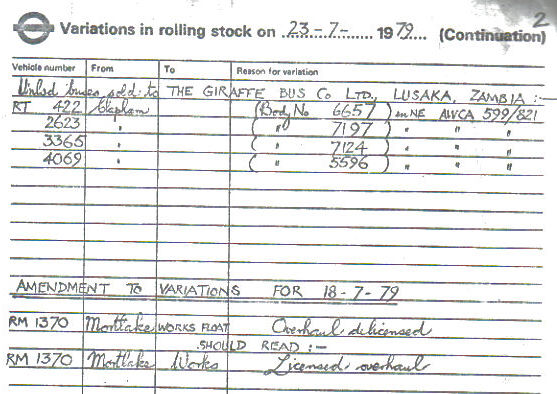 2
Variations in rolling stock on 23-7- 1979 (Continuation)
Vehicle number From To Reason for variation
buses sold to THE GIRAFFE BUS Co LTD., LUSAKA, ZAMBIA :-
RT 422 Clapham (Body No 6657) in NE AWCA 599/821
2623 " ( " 7197 ) " " "
3365 " ( " 7124 ) " " "
4069 " ( " 5596 ) " " "
AMENDMENT TO VARIATIONS FOR 18-7-79
RM 1370 Mortlake WORKS FLOAT Overhaul delicensed
SHOULD READ :-
RM 1370 Mortlake Works Licensed overhaul